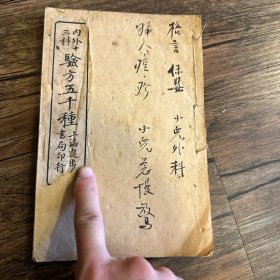 格言 保嬰 小兒外科
婦人 痘疹 小兒急慢驚
内外十
三科
驗方五千種
上海進步
書局印行